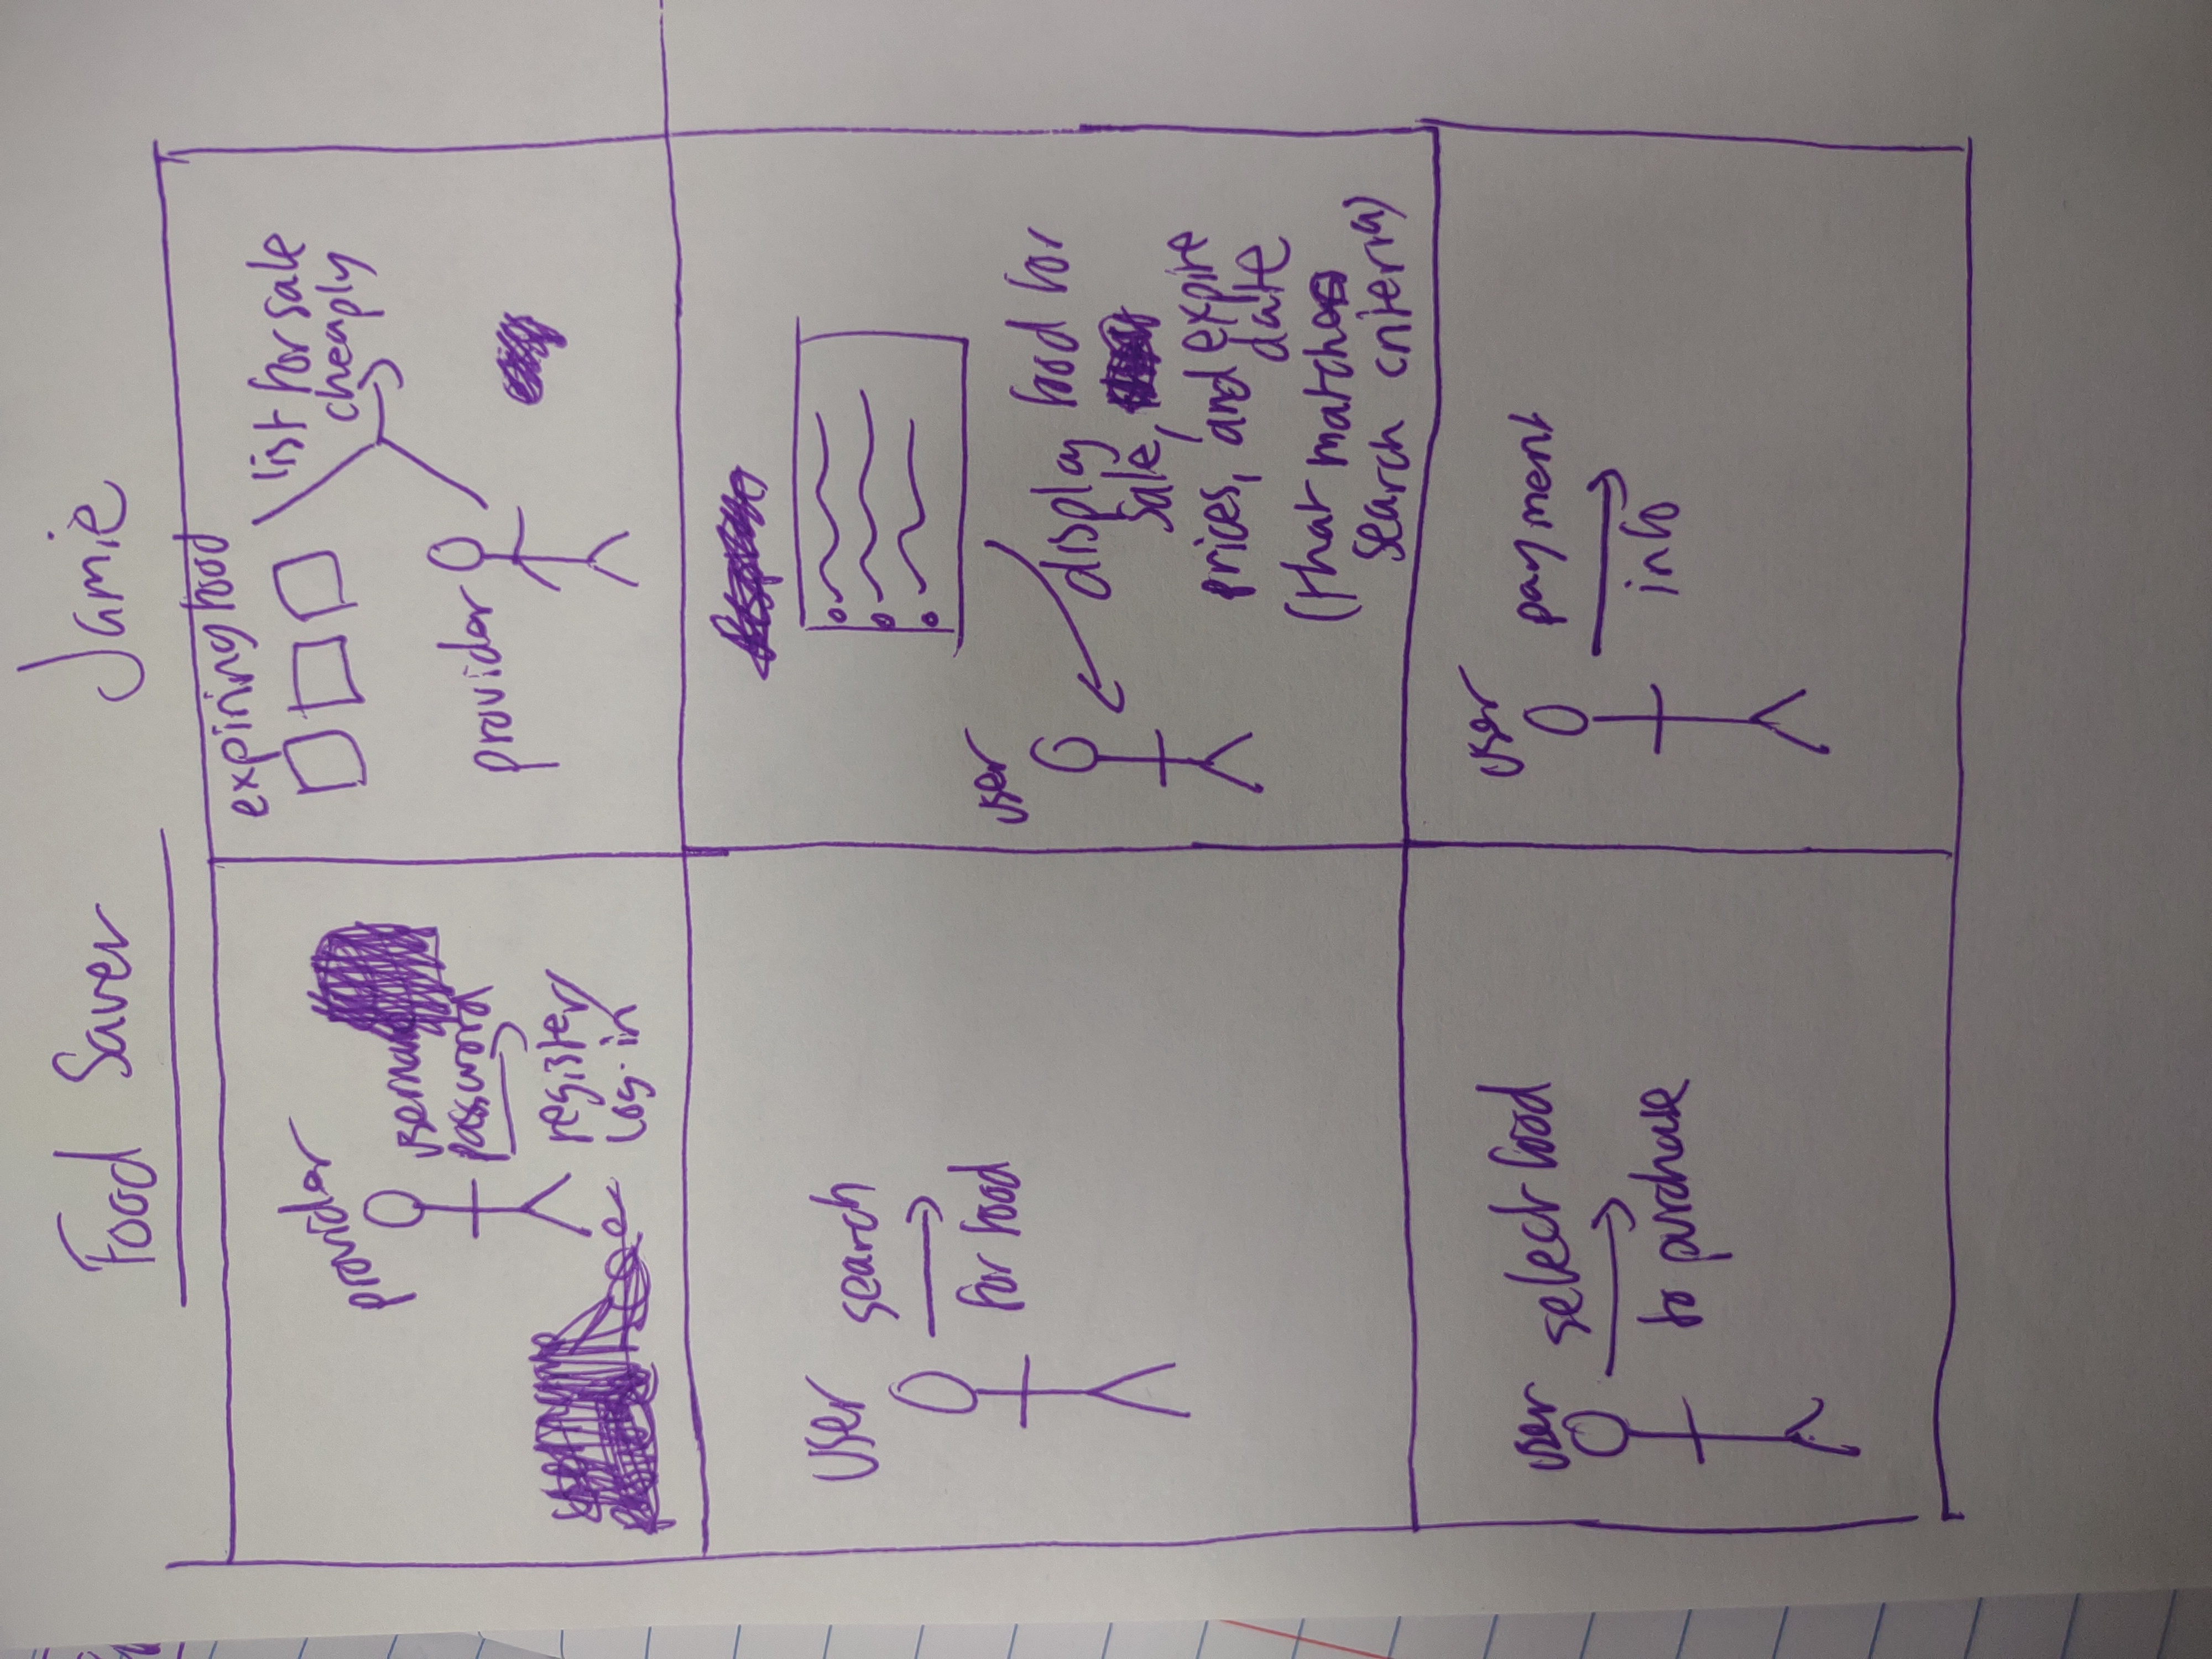 Food Saver
Jamie
provider
password
register/
log-in
expiring food
list for sale
cheaply
provider
user
search
for food
user
display food for
sale,
prices, and expire
date
(that match
search criteria)
user
select food
to purchase
user
payment
info